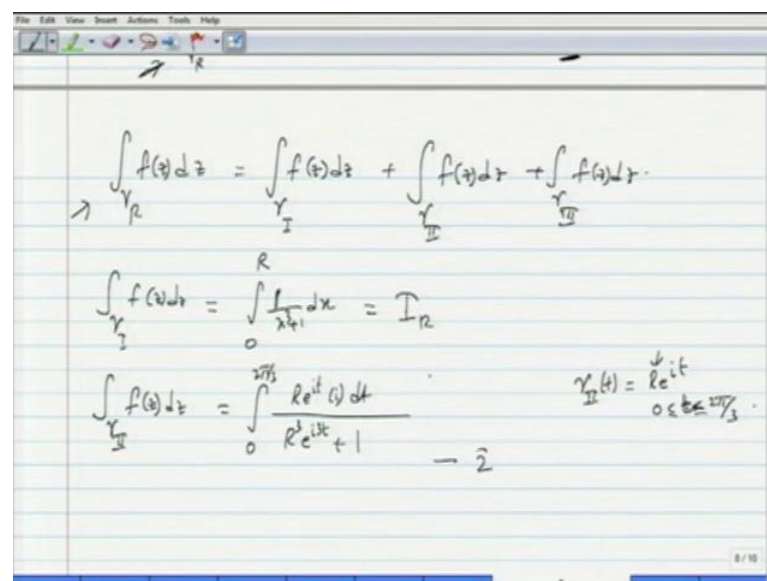 File Edit View Insert Actions Tools Help
γ_R
∫_{γ_R} f(z)dz = ∫_{γ_I} f(z)dz + ∫_{γ_II} f(z)dz + ∫_{γ_III} f(z)dz.
∫_{γ_I} f(z)dz = ∫_0^R 1/(x^3+1) dx = I_R
∫_{γ_II} f(z)dz = ∫_0^{2π/3} Re^{it}(i)dt / (R^3e^{i3t} + 1) — 2
γ_II(t) = Re^{it}
0 ≤ t ≤ 2π/3.
8 / 10